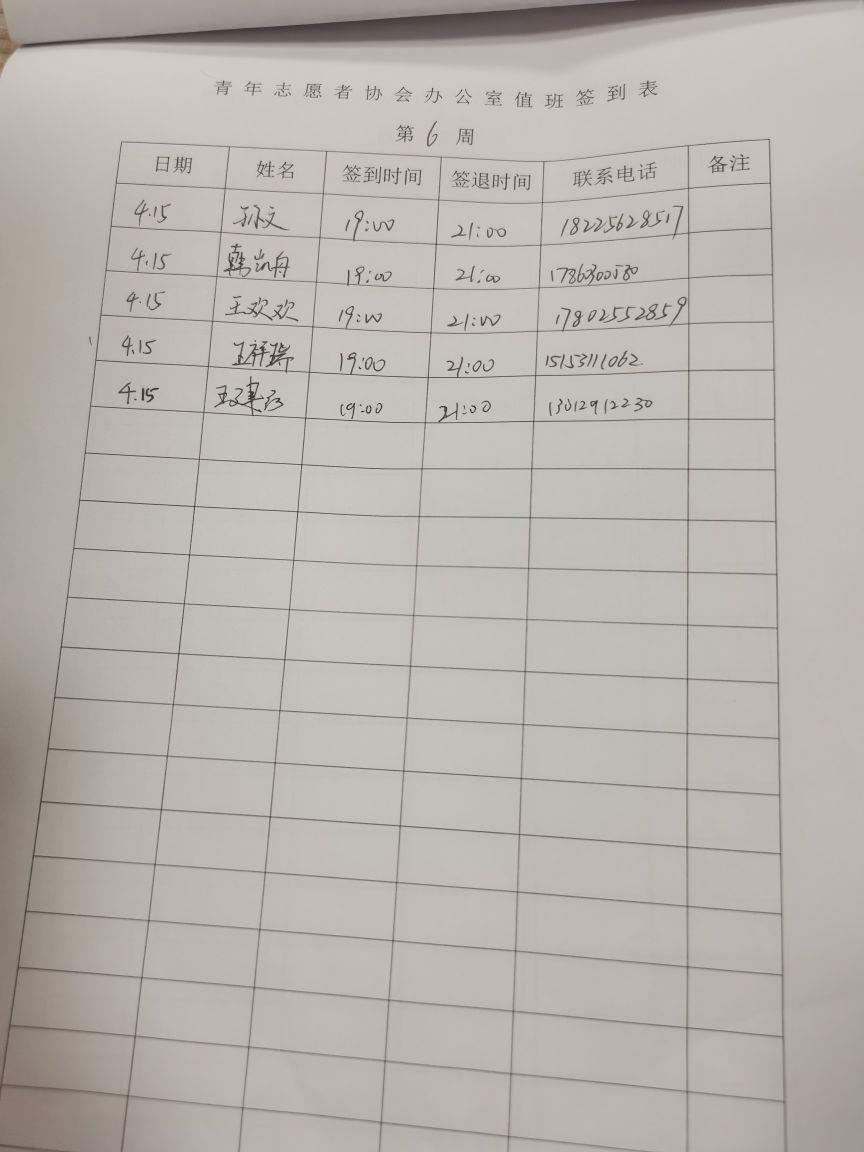 青年志愿者协会办公室值班签到表
第6周
日期 姓名 签到时间 签退时间 联系电话 备注
4.15 孙文 19:00 21:00 18225628517
4.15 韩凯舟 19:00 21:00 1786300580
4.15 王欢欢 19:00 21:00 17802552859
4.15 王祥瑞 19:00 21:00 15153111062
4.15 19:00 21:00 13012912230